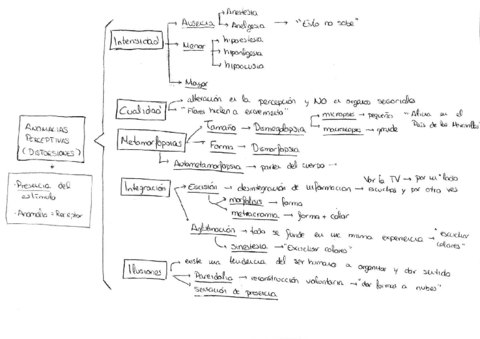 ANOMALÍAS
PERCEPTIVAS
(DISTORSIONES)
· Presencia del
estímulo
· Anomalía = Receptor
Intensidad
Ausencia
Anestesia
Analgesia
"Esto no sabe"
Menor
hipoestesia
hipoalgesia
hipoacusia
Mayor
Cualidad
alteración en la percepción y NO en órganos sensoriales
"Flores huelen a excremento"
Metamorfopsias
Tamaño → Dismegalopsia
micropsia → pequeño
macropsia → grande
"Alicia en el
País de las Maravillas"
Forma → Dismorfopsia
Autometamorfopsia → partes del cuerpo
Integración
Escisión → desintegración de información
Ver la TV → por un lado
escuchas y por otro ves
morfolisis → forma
metacromia → forma + color
Aglutinación → todo se funde en una misma experiencia → "escuchar
colores"
sinestesia → "Escuchar colores"
Ilusiones
existe una tendencia del ser humano a organizar y dar sentido
Pareidolia → reconstrucción voluntaria → "dar forma a nubes"
sensación de presencia